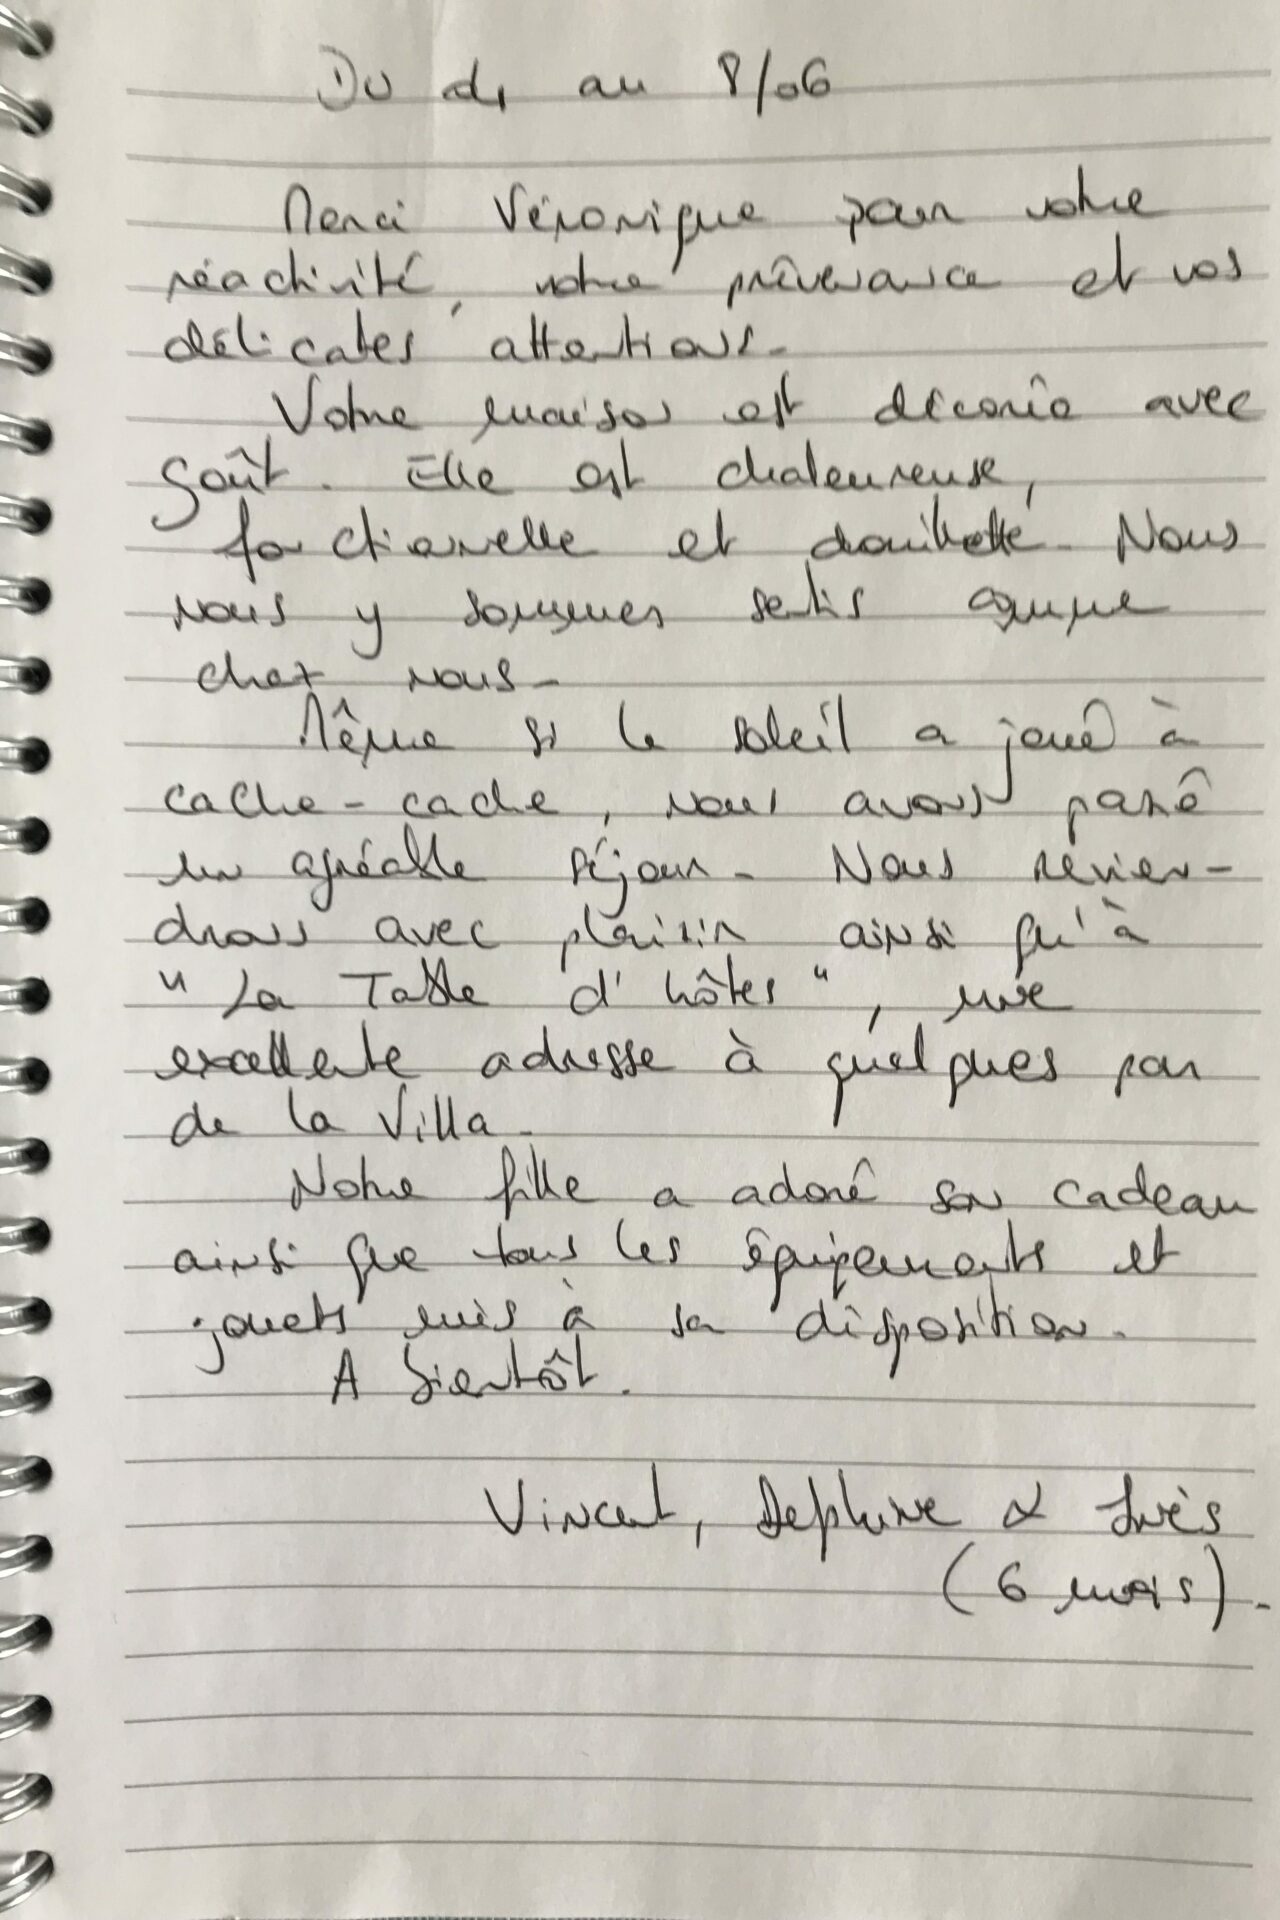 Du d1 au 8/06
Merci Véronique pour votre
réactivité, votre prévenance et vos
délicates attentions.
Votre maison est décorée avec
goût. Elle est chaleureuse,
fonctionnelle et douillette. Nous
nous y sommes sentis comme
chez nous.
Même si le soleil a joué à
cache-cache, nous avons passé
un agréable séjour. Nous revien-
drons avec plaisir ainsi qu'à
"La Table d'hôtes", une
excellente adresse à quelques pas
de la Villa.
Notre fille a adoré son cadeau
ainsi que tous les équipements et
jouets mis à sa disposition.
A bientôt.
Vincent, Delphine & Inès
(6 mois).